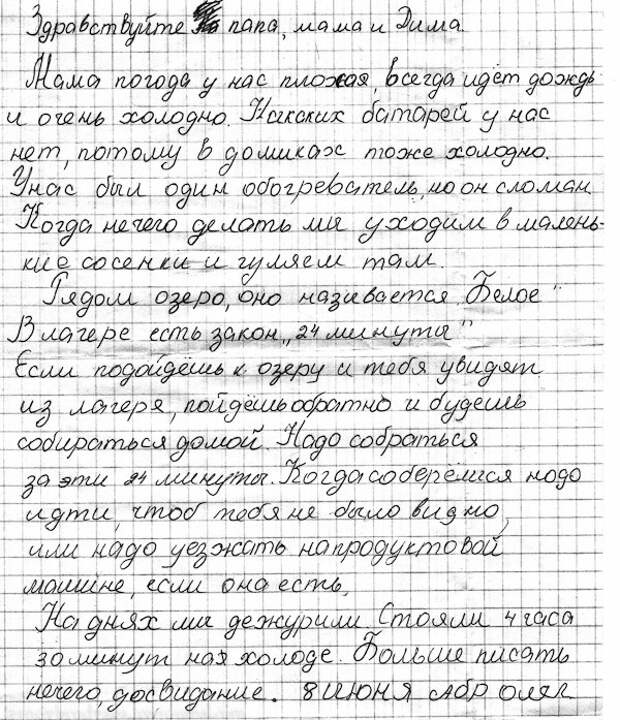 Здравствуйте папа, мама и Дима.
Мама погода у нас плохая, всегда идёт дождь
и очень холодно. Никаких батарей у нас
нет, потому в домиках тоже холодно.
У нас был один обогреватель, но он сломан.
Когда нечего делать мы уходим в малень-
кие сосенки и гуляем там.
Рядом озеро, оно называется „Белое"
В лагере есть закон „24 минуты"
Если подойдёшь к озеру и тебя увидят
из лагеря, пойдёшь обратно и будешь
собираться домой. Надо собраться
за эти 24 минуты. Когда соберёшся надо
идти, чтоб тебя не было видно,
или надо уезжать на продуктовой
машине, если она есть.
На днях мы дежурили. Стояли 4 часа
30 минут на холоде. Больше писать
нечего, досвидание. 8 июня Олег